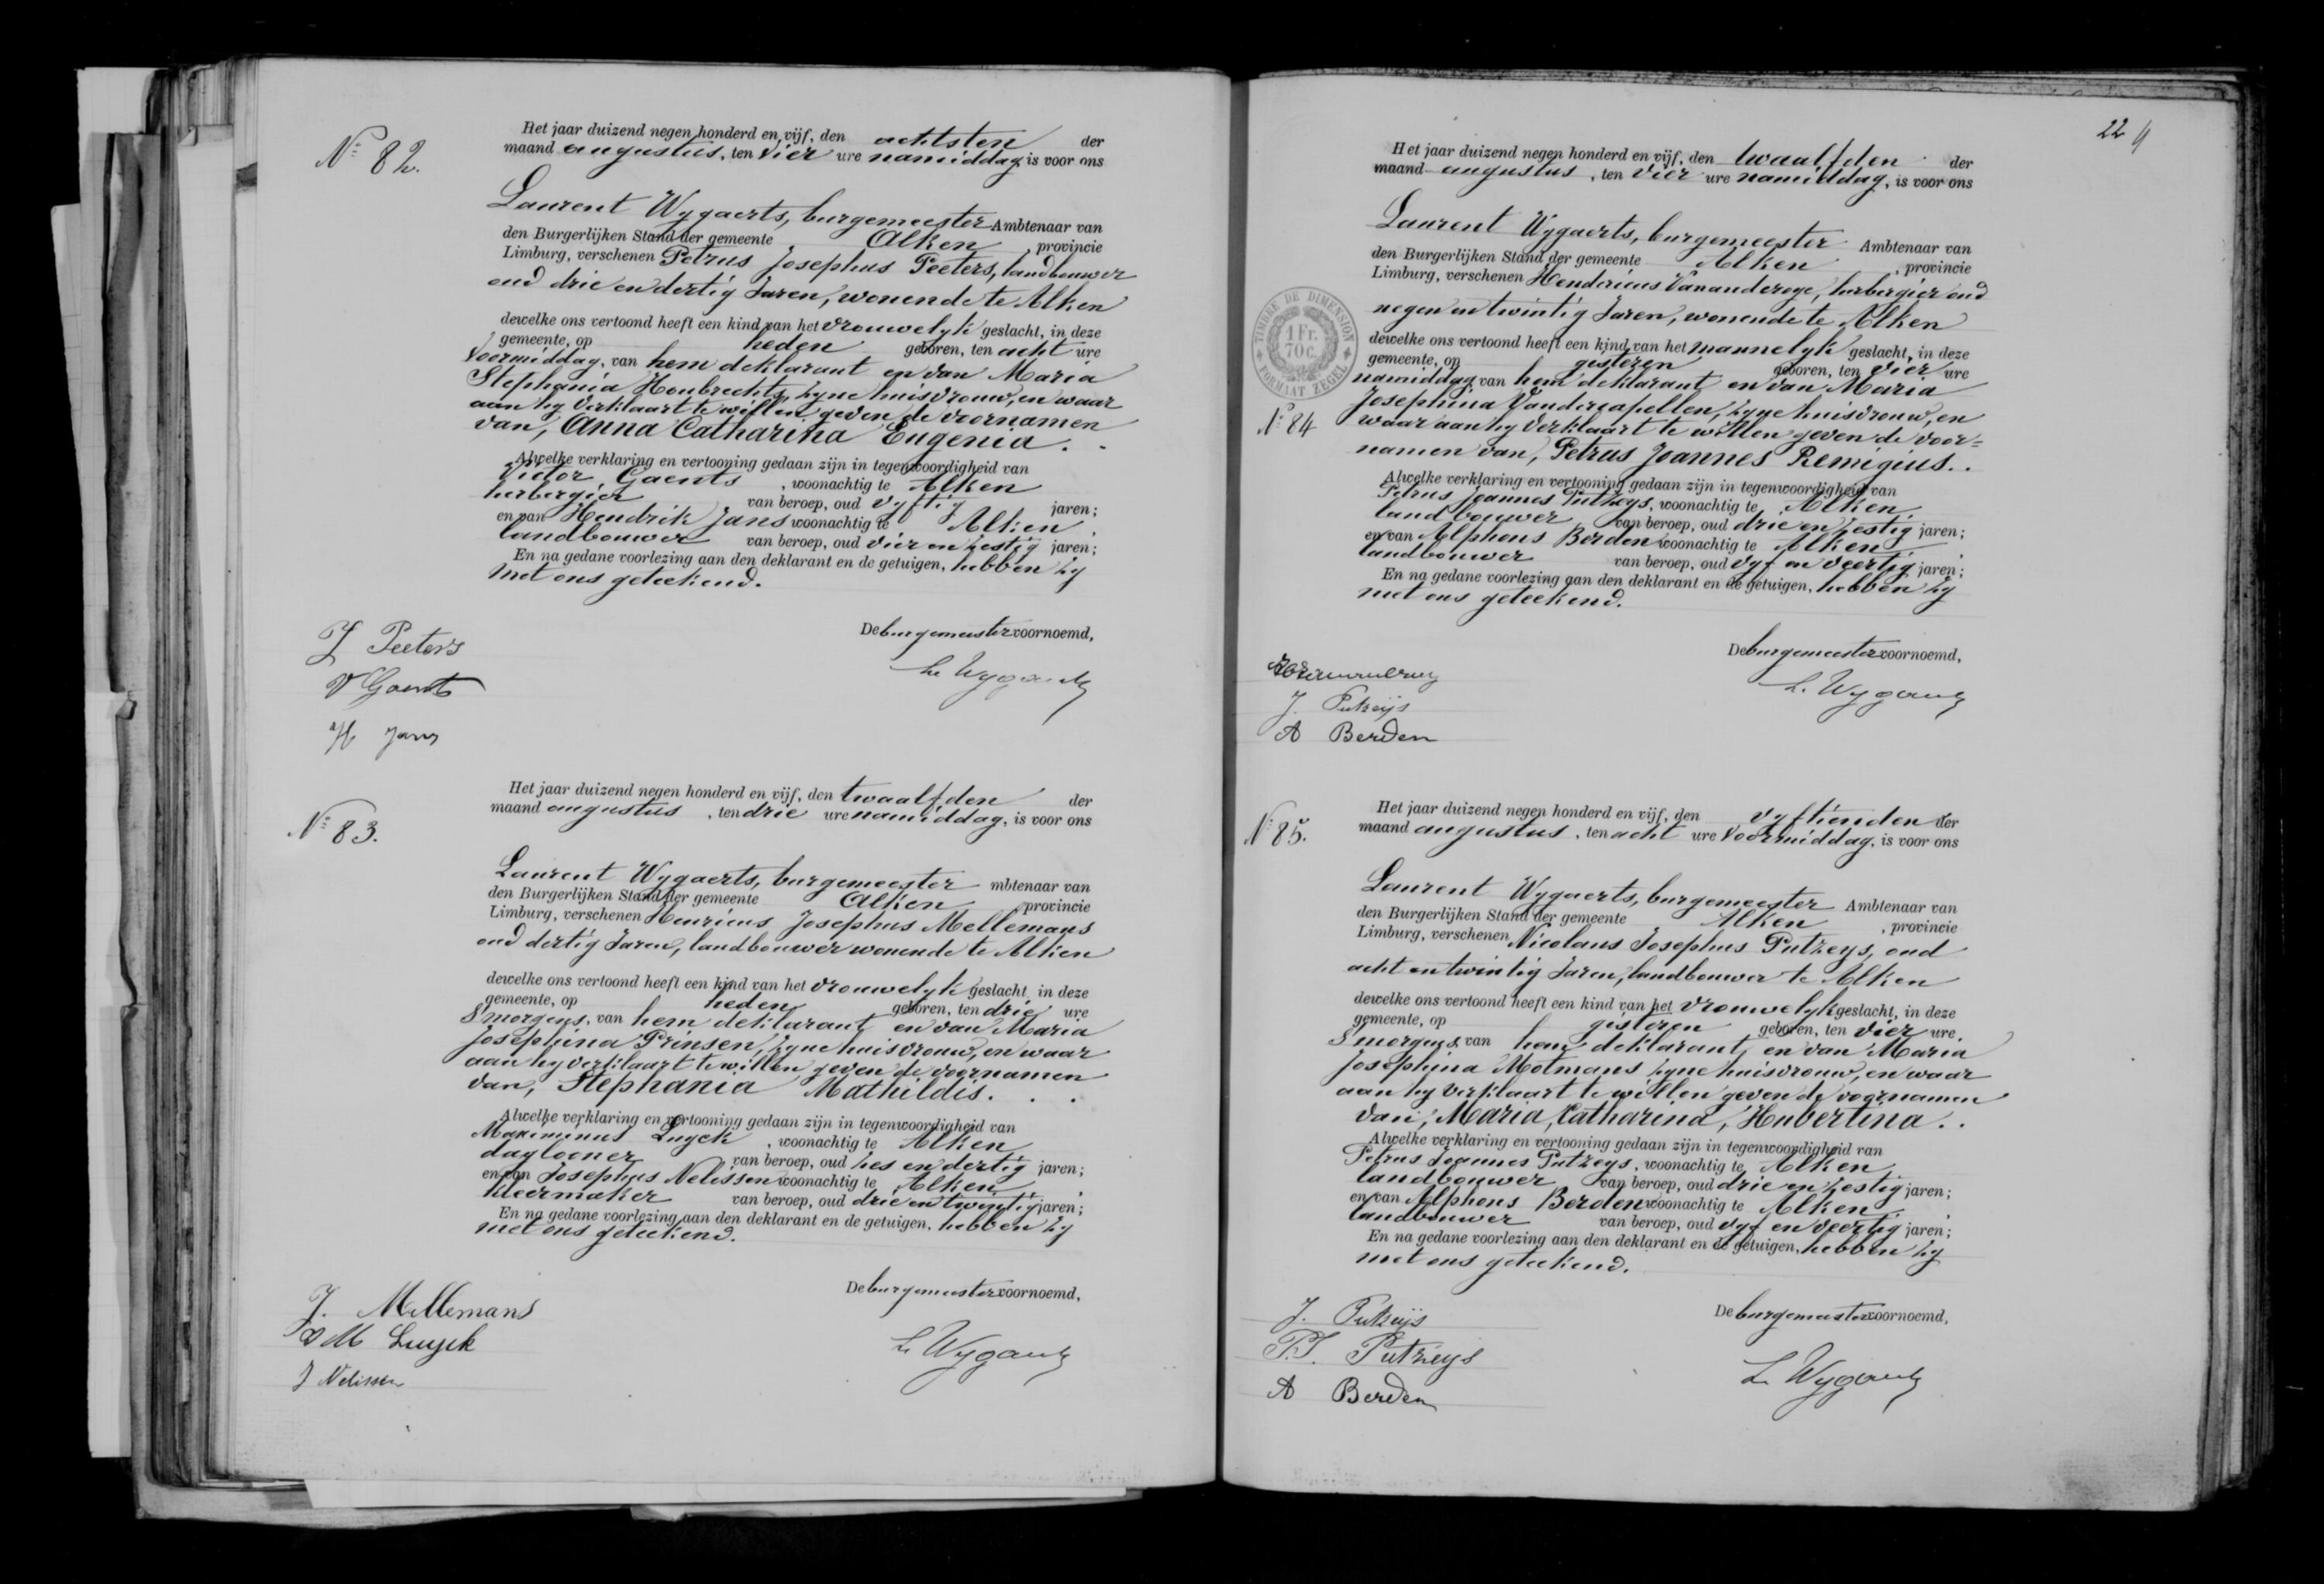 Nº 82.
Het jaar duizend negen honderd en vijf, den achtsten der
maand augustus, ten vier ure namiddag, is voor ons
Laurent Wygaerts, burgemeester Ambtenaar van
den Burgerlijken Stand der gemeente Alken, provincie
Limburg, verschenen Petrus Josephus Peeters, landbouwer
oud drie en dertig Jaren, wonende te Alken
dewelke ons vertoond heeft een kind van het vrouwelyk geslacht, in deze
gemeente, op heden geboren, ten acht ure
voormiddag, van hem deklarant en van Maria
Stephania Houbrechts, zyne huisvrouw, en waar
aan hy verklaart te willen geven de voornamen
van, Anna Catharina Eugenia.
Alwelke verklaring en vertooning gedaan zijn in tegenwoordigheid van
Victor Gaents, woonachtig te Alken
herbergier van beroep, oud vyftig jaren;
en van Hendrik Jans woonachtig te Alken,
landbouwer van beroep, oud vier en zestig jaren;
En na gedane voorlezing aan den deklarant en de getuigen, hebben zy
met ons geteekend.
De burgemeester voornoemd,
J Peeters
V Gaents
H Jans
L. Wygaerts
Nº 83.
Het jaar duizend negen honderd en vijf, den twaalfden der
maand augustus, ten drie ure namiddag, is voor ons
Laurent Wygaerts, burgemeester mbtenaar van
den Burgerlijken Stand der gemeente Alken, provincie
Limburg, verschenen Henricus Josephus Mellemans
oud dertig Jaren, landbouwer wonende te Alken
dewelke ons vertoond heeft een kind van het vrouwelyk geslacht, in deze
gemeente, op heden geboren, ten drie ure
Smorgens, van hem deklarant en van Maria
Josephina Prinsen, zyne huisvrouw, en waar
aan hy verklaart te willen geven de voornamen
van, Stephania Mathildis. . .
Alwelke verklaring en vertooning gedaan zijn in tegenwoordigheid van
Maximinus Luyck, woonachtig te Alken
daglooner van beroep, oud zes en dertig jaren;
en van Josephus Nelissen woonachtig te Alken,
kleermaker van beroep, oud drie en twintig jaren;
En na gedane voorlezing aan den deklarant en de getuigen, hebben zy
met ons geteekend.
De burgemeester voornoemd,
J. Mellemans
M Luyck
J Nelissen
L. Wygaerts
22
TIMBRE DE DIMENSION
1 Fr.
70 c.
FORMAAT ZEGEL
Nº 84
Het jaar duizend negen honderd en vijf, den twaalfden der
maand augustus, ten vier ure namiddag, is voor ons
Laurent Wygaerts, burgemeester Ambtenaar van
den Burgerlijken Stand der gemeente Alken, provincie
Limburg, verschenen Hendericus Vananderoye, herbergier oud
negen en twintig Jaren, wonende te Alken
dewelke ons vertoond heeft een kind van het mannelyk geslacht, in deze
gemeente, op gisteren geboren, ten vier ure
namiddag van hem deklarant en van Maria
Josephina Vandercapellen, zyne huisvrouw, en
waar aan hy verklaart te willen geven de voor=
namen van, Petrus Joannes Remigius. .
Alwelke verklaring en vertooning gedaan zijn in tegenwoordigheid van
Petrus Joannes Putzeys, woonachtig te Alken
landbouwer van beroep, oud drie en zestig jaren;
en van Alphons Berden woonachtig te Alken,
landbouwer van beroep, oud vyf en veertig jaren;
En na gedane voorlezing aan den deklarant en de getuigen, hebben zy
met ons geteekend.
De burgemeester voornoemd,
J. Putzeijs
A Berden
L. Wygaerts
Nº 85.
Het jaar duizend negen honderd en vijf, den vyftienden der
maand augustus, ten acht ure voormiddag, is voor ons
Laurent Wygaerts, burgemeester Ambtenaar van
den Burgerlijken Stand der gemeente Alken, provincie
Limburg, verschenen Nicolaus Josephus Putzeys, oud
acht en twintig Jaren, landbouwer te Alken
dewelke ons vertoond heeft een kind van het vrouwelyk geslacht, in deze
gemeente, op gisteren geboren, ten vier ure.
Smorgens van hem deklarant, en van Maria
Josephina Motmans zyne huisvrouw, en waar
aan hy verklaart te willen geven de voornamen
van, Maria, Catharina, Hubertina. .
Alwelke verklaring en vertooning gedaan zijn in tegenwoordigheid van
Petrus Joannes Putzeys, woonachtig te Alken
landbouwer van beroep, oud drie en zestig jaren;
en van Alphons Berden woonachtig te Alken,
landbouwer van beroep, oud vyf en veertig jaren;
En na gedane voorlezing aan den deklarant en de getuigen, hebben zy
met ons geteekend.
De burgemeester voornoemd,
J. Putzeijs
P.J. Putzeys
A Berden
L. Wygaerts